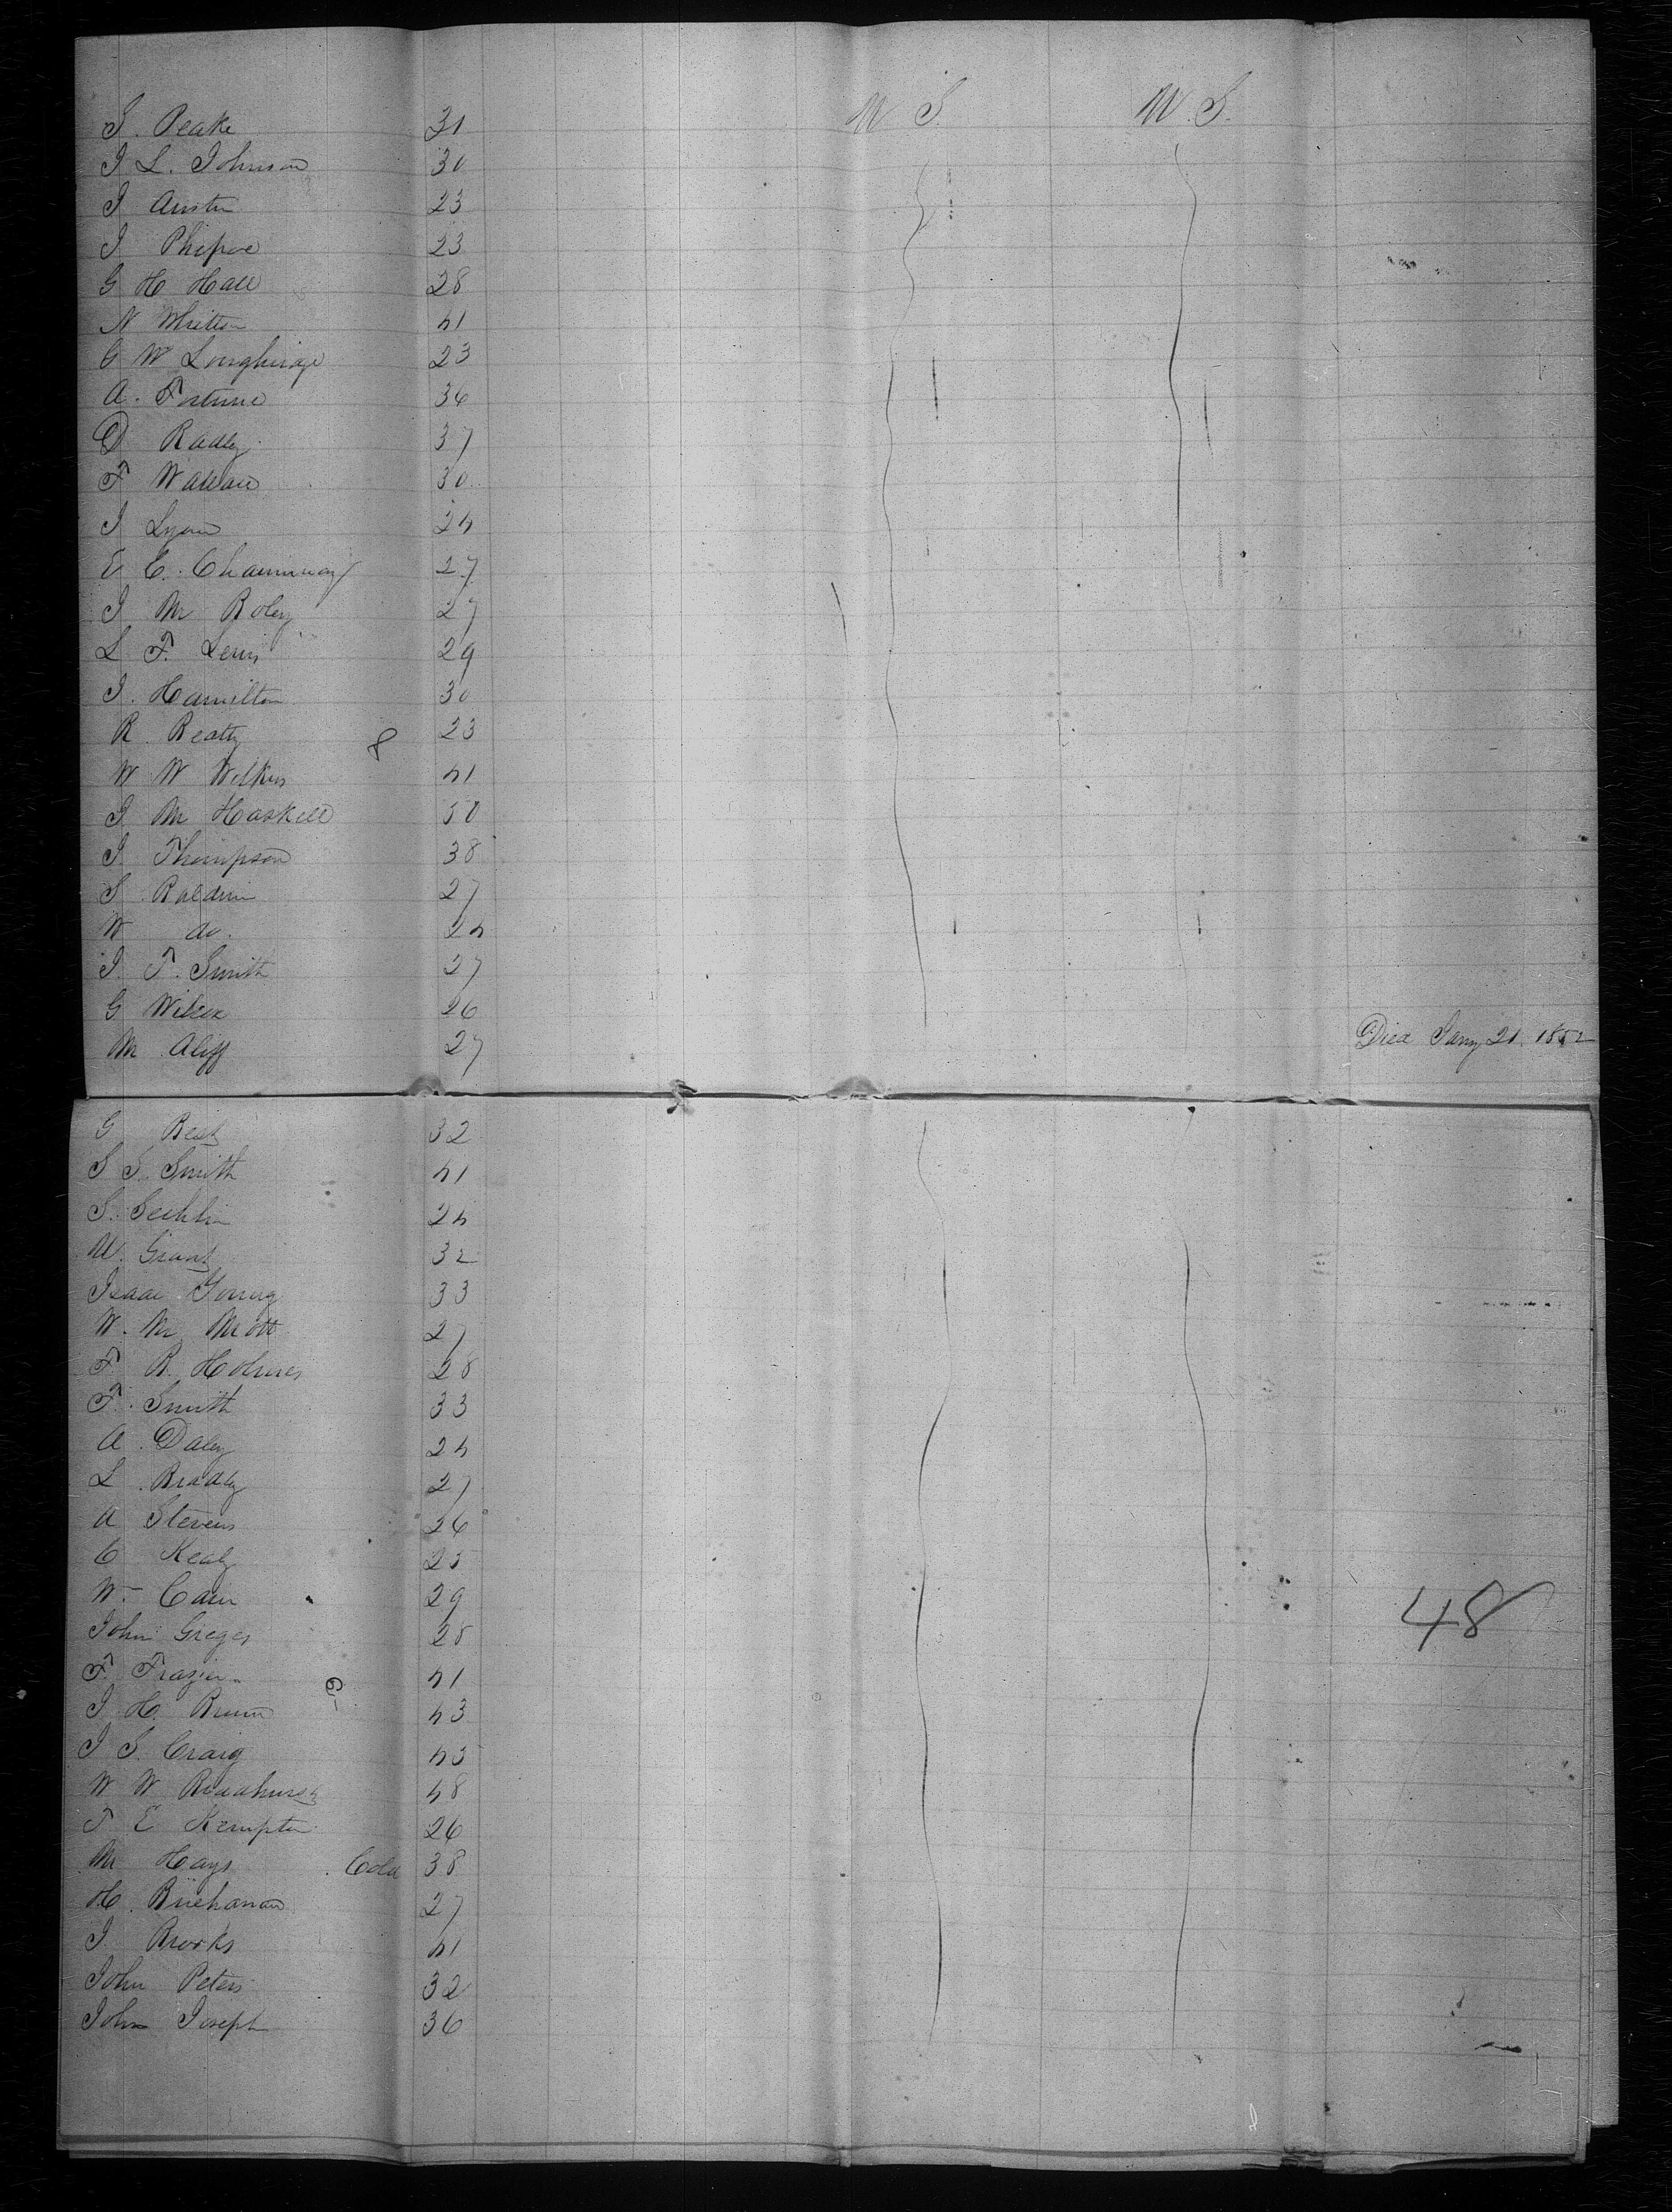 J. Peake 31 U S. U. S.
J L. Johnson 30
J Austin 23
J Phipoe 23
G H Hall 28
N Whitten 41
G W 23
A. Fortune 36
D Radley 37
F Wallace 30
J Lyon 24
E E. Channway 27
J M Roley 27
L F. Lewis 29
J. Hamilton 30
R. Beatty 23
8
W W Wilkins 41
J M Haskell 50
J Thompson 38
S Baldwin 27
W do. 24
J. F. Smith 27
G Wilcox 26
M Aliff 27 Died Jany 21. 1852
G Best 32
S S. Smith 41
S. 24
U. Grant 32
Isaac Young 33
W. M. Mott 27
F R. Holmes 28
F. Smith 33
A. Daley 24
L. Bradly 27
A Stevens 26
C Kealy 25
W. Cain 29
48
John Greges 28
F. Frazier 41
J H. Brown 43
J S. Craig 45
W W Broadhurst 48
F E Kempton 26
M Hays Cold 38
H. Buchanan 27
J Brooks 41
John Peters 32
John Joseph 36